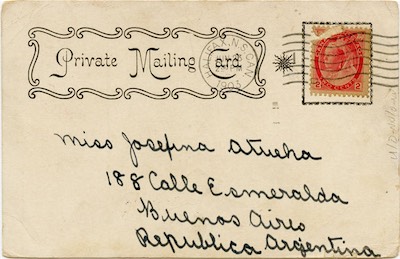 Private Mailing Card
HALIFAX, N.S. CAN.
2 2
Miss Josefina Atucha
188 Calle Esmeralda
Buenos Aires
Republica Argentina